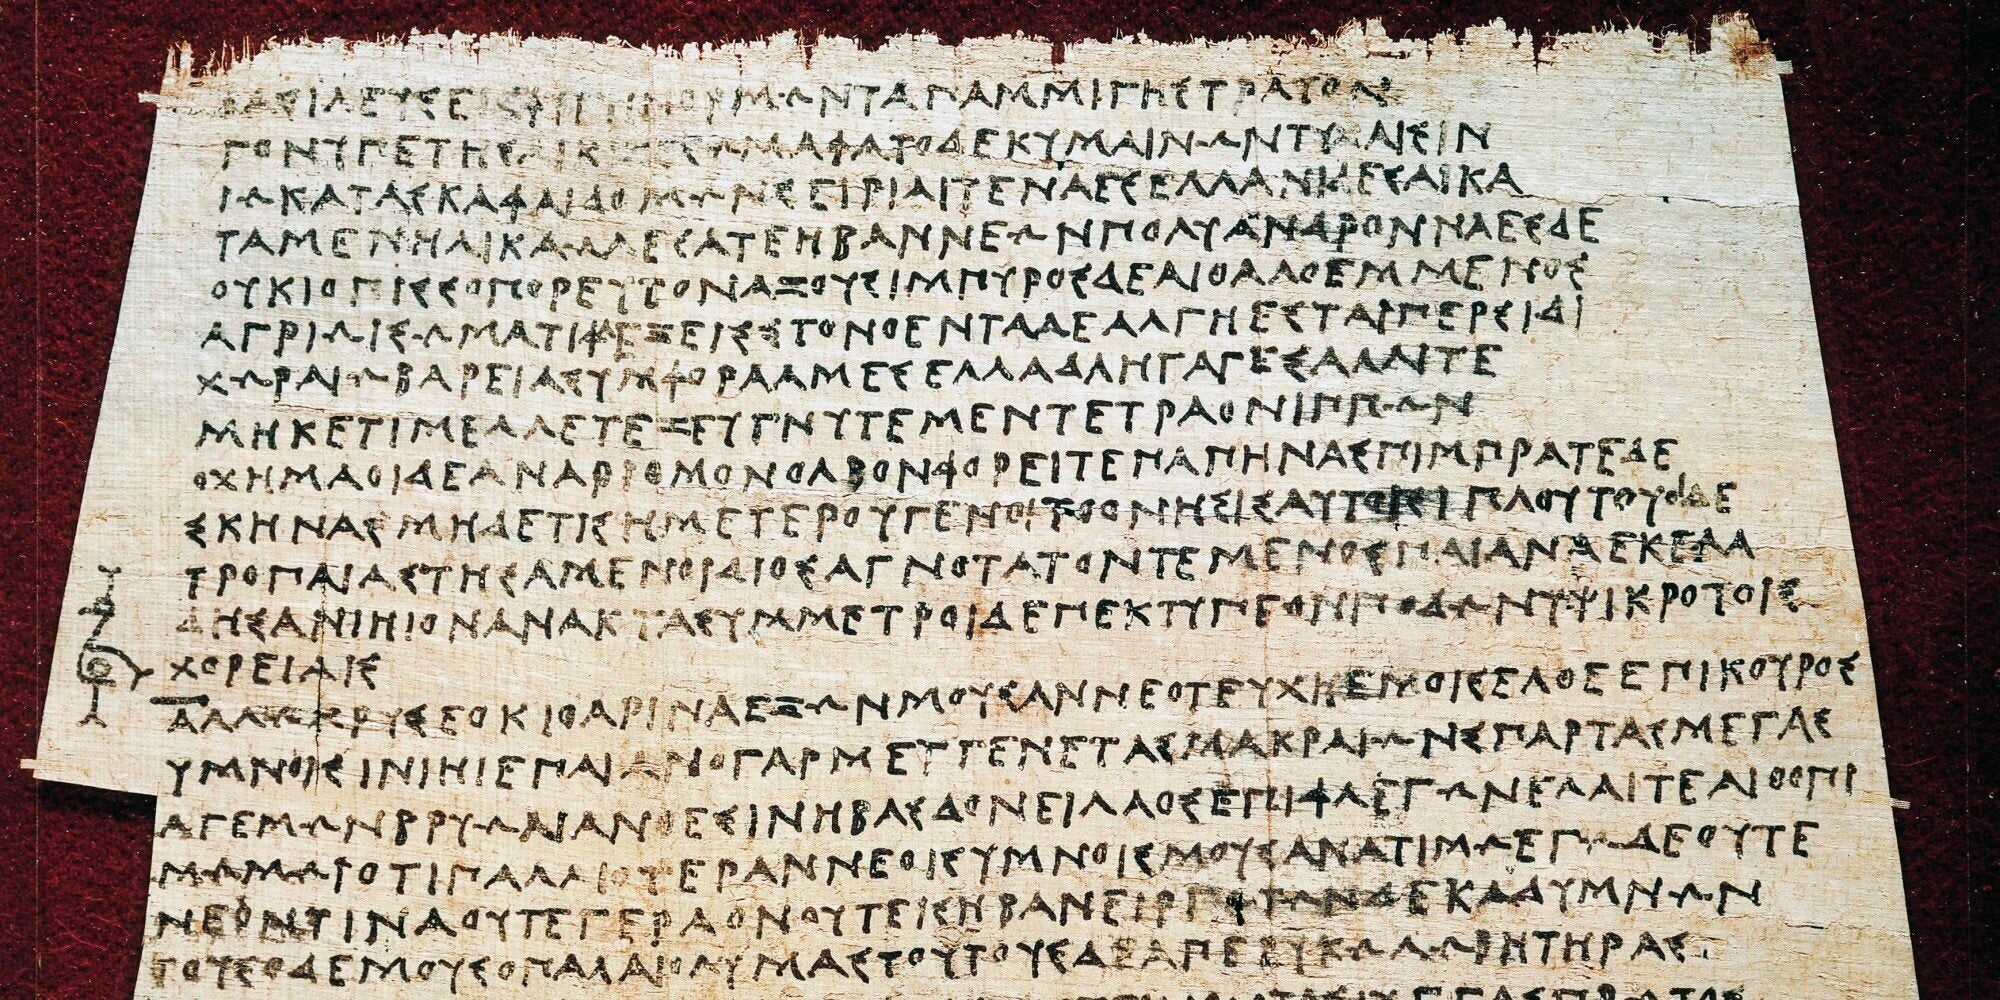 ΒΑΣΙΛΕΥΣΕΙΣΦΥΓΗΝΟΡΜΩΝΤΑΠΑΜΜΙΓΗΣΤΡΑΤΟΝ
ΓΟΝΥΠΕΤΗΣΑΙΚΙΖΕΣΩΜΑΦΑΤΟΔΕΚΥΜΑΙΝΩΝΤΥΧΑΙΣΙΝ
ΙΩΚΑΤΑΣΚΑΦΑΙΔΟΜΩΝΣΕΙΡΙΑΙΤΕΝΑΕΣΕΛΛΑΝΙΔΕΣΑΙΚΑ
ΤΑΜΕΝΗΛΙΚΑΩΛΕΣΑΤΕΗΒΑΝΝΕΩΝΠΟΛΥΑΝΔΡΟΝΝΑΕΣΔΕ
ΟΥΚΙΟΠΙΣΣΟΠΟΡΕΥΤΟΝΑΞΟΥΣΙΜΠΥΡΟΣΔΕΑΙΘΑΛΟΕΜΜΕΝΟΣ
ΑΓΡΙΩΙΣΩΜΑΤΙΦΛΕΞΕΙΣΣΤΟΝΟΕΝΤΑΔΕΑΛΓΗΕΣΤΑΙΠΕΡΣΙΔΙ
ΧΩΡΑΙΩΒΑΡΕΙΑΣΥΜΦΟΡΑΑΜΕΣΕΛΛΑΔΑΗΓΑΓΕΣΑΛΛΙΤΕ
ΜΗΚΕΤΙΜΕΛΛΕΤΕΖΕΥΓΝΥΤΕΜΕΝΤΕΤΡΑΟΝΙΠΠΩΝ
ΟΧΗΜΑΟΙΔΕΑΝΑΡΙΘΜΟΝΟΛΒΟΝΦΟΡΕΙΤΕΠΑΠΗΝΑΣΠΙΜΠΡΑΤΕΔΕ
ΣΚΗΝΑΣΜΗΔΕΤΙΣΗΜΕΤΕΡΟΥΓΕΝΟΙΤΟΟΝΗΣΙΣΑΥΤΟΙΣΙΠΛΟΥΤΟΥΟΙΔΕ
ΤΡΟΠΑΙΑΣΤΗΣΑΜΕΝΟΙΔΙΟΣΑΓΝΟΤΑΤΟΝΤΕΜΕΝΟΣΠΑΙΑΝΑΕΚΕΛΑ
ΔΗΣΑΝΙΗΙΟΝΑΝΑΚΤΑΣΥΜΜΕΤΡΟΙΔΕΠΕΚΤΥΠΕΟΝΠΟΔΩΝΥΨΙΚΡΟΤΟΙΣ
ΧΟΡΕΙΑΙΣ
ΑΛΛΩΧΡΥΣΕΟΚΙΘΑΡΙΝΑΕΞΩΝΜΟΥΣΑΝΝΕΟΤΕΥΧΗΕΜΟΙΣΕΛΘΕΕΠΙΚΟΥΡΟΣ
ΥΜΝΟΙΣΙΝΙΗΙΕΠΑΙΑΝΟΓΑΡΜΕΥΓΕΝΕΤΑΣΜΑΚΡΑΙΩΝΣΠΑΡΤΑΣΜΕΓΑΣ
ΑΓΕΜΩΝΒΡΥΩΝΑΝΘΕΣΙΝΗΒΑΣΔΟΝΕΙΛΑΟΣΕΠΙΦΛΕΓΩΝΕΛΑΙΤΕΑΙΘΟΠΙ
ΜΩΜΩΙΟΤΙΠΑΛΑΙΟΤΕΡΑΝΝΕΟΙΣΥΜΝΟΙΣΜΟΥΣΑΝΑΤΙΜΩΕΓΩΔΕΟΥΤΕ
ΝΕΟΝΤΙΝΑΟΥΤΕΓΕΡΑΟΝΟΥΤΕΙΣΗΒΑΝΕΙΡΓΩΤΩΝΔΕΚΑΔΥΜΝΩΝ
ΤΟΥΣΔΕΜΟΥΣΟΠΑΛΑΙΟΛΥΜΑΣΤΟΥΤΟΥΣΔΕΑΠΕΡΥΚΩΛΩΒΗΤΗΡΑΣ